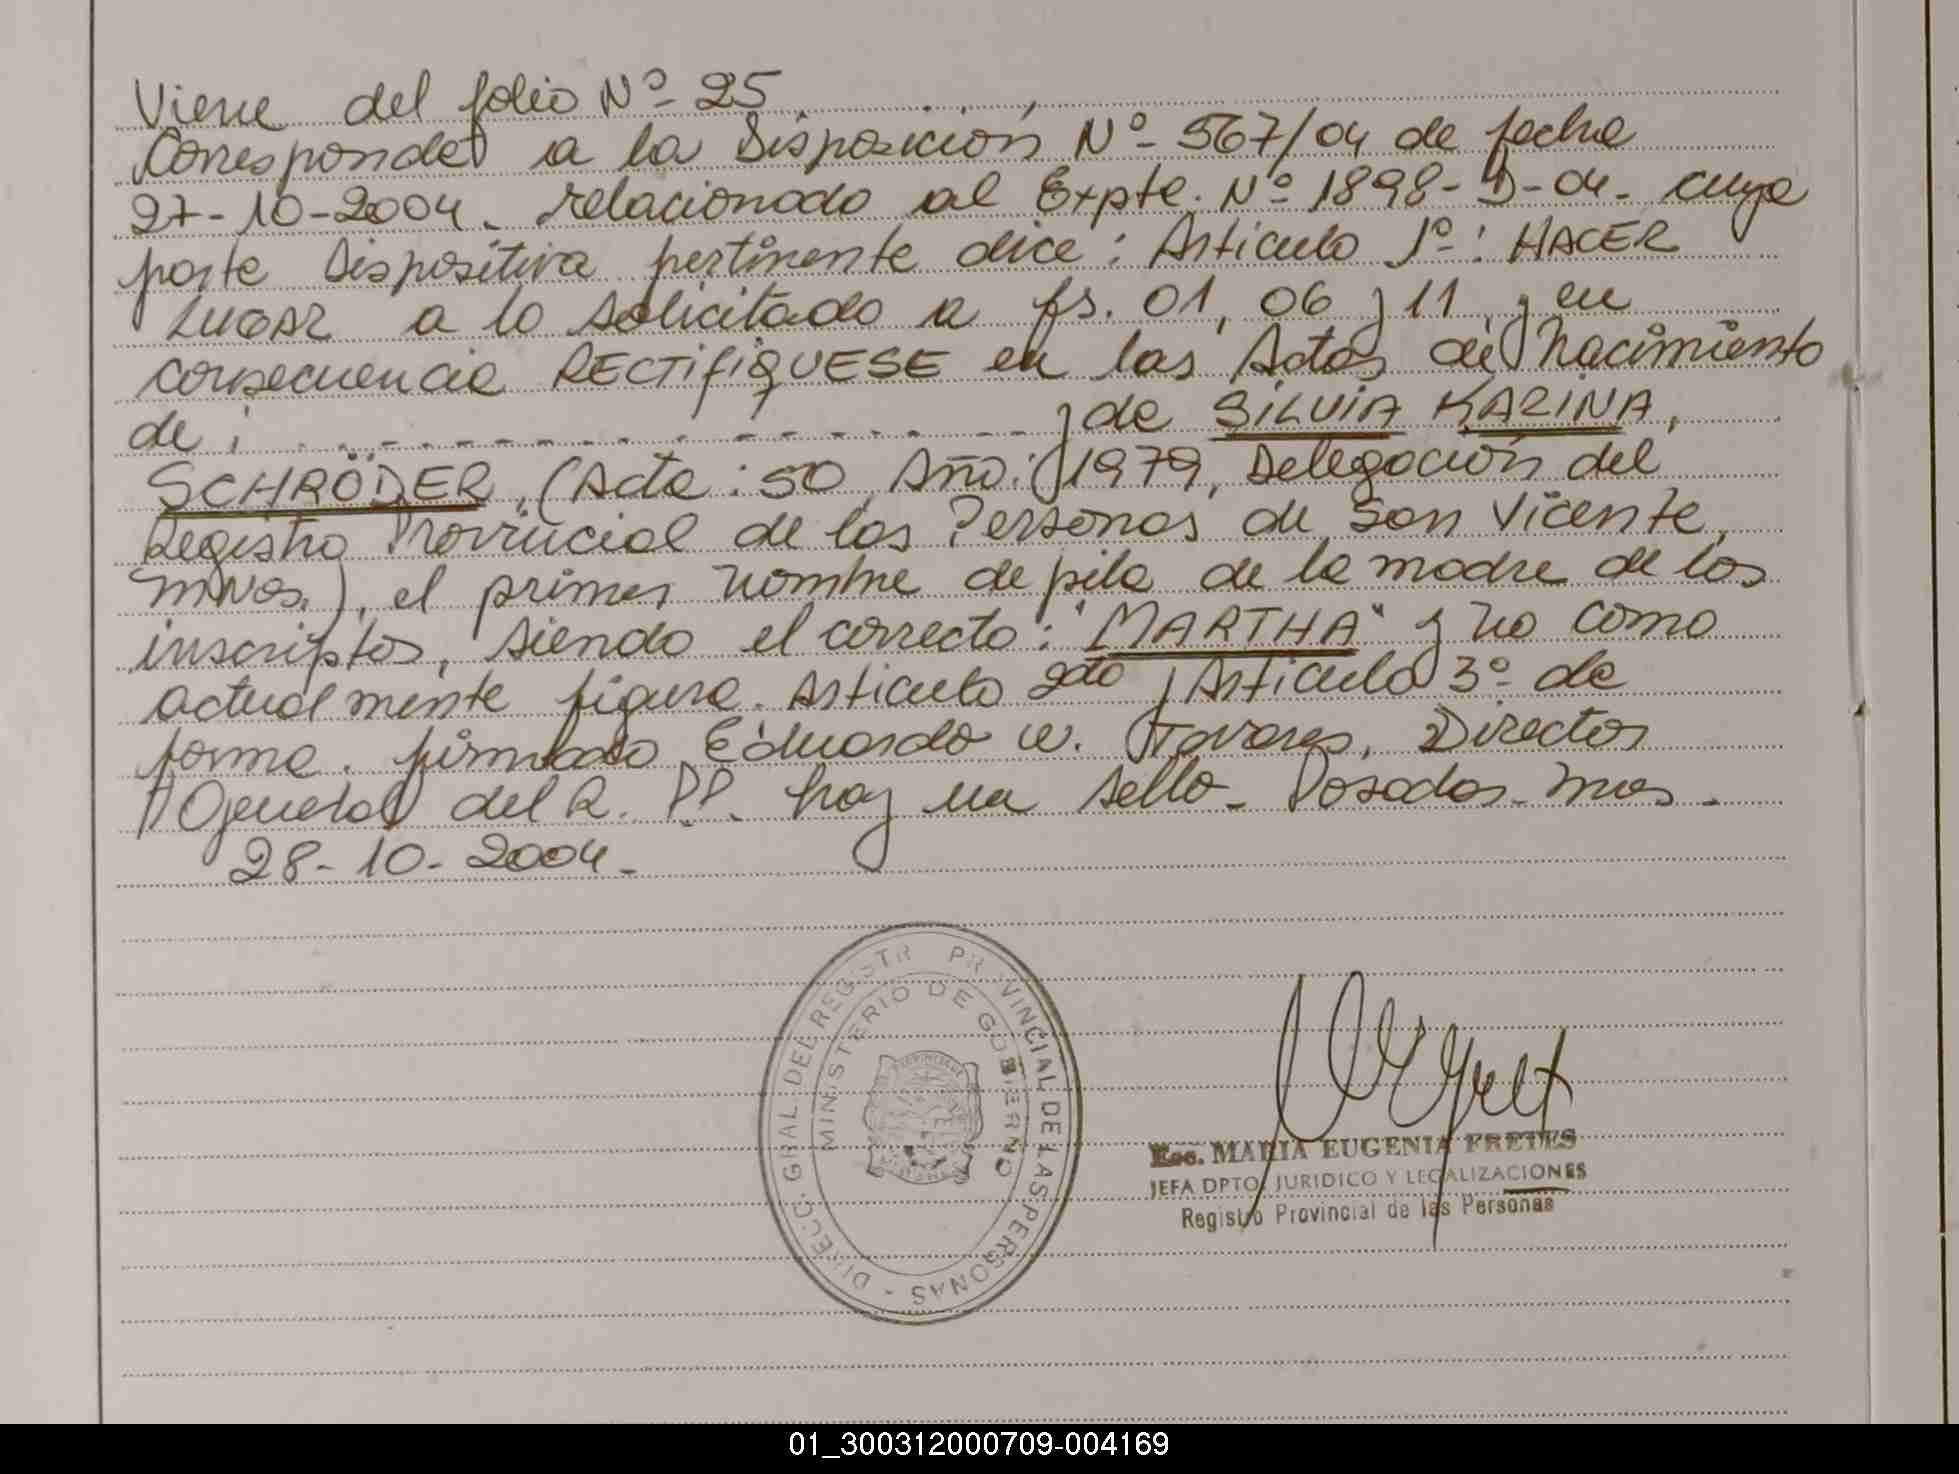 Viene del folio Nº 25
Corresponde a la Disposición Nº 567/04 de fecha
27-10-2004. relacionado al Expte. Nº 1898-D-04. cuya
parte Dispositiva pertinente dice: Articulo 1º: HACER
LUGAR a lo solicitado a fs. 01, 06 y 11, y en
consecuencia RECTIFIQUESE en las Actas de Nacimiento
de: - - - - - - - - - - - - - - - y de SILVIA KARINA,
SCHRÖDER, (Acta: 50 Año: 1979, Delegación del
Registro Provincial de las Personas de San Vicente,
Mnes.), el primer nombre de pila de la madre de los
inscriptos, siendo el correcto: "MARTHA" y no como
actualmente figura. Articulo 2do y Articulo 3º de
forma. firmado Eduardo W. Tavares, Director
General del R. P.P. hay un sello - Posadas. Mnes.
28-10-2004.-
DIRECC. GRAL DEL REGISTR PR VINCIAL DE LAS PERSONAS -
MINISTERIO DE GOBIERNO
Esc. MARIA EUGENIA FRETES
JEFA DPTO. JURIDICO Y LEGALIZACIONES
Registro Provincial de las Personas
01_300312000709-004169